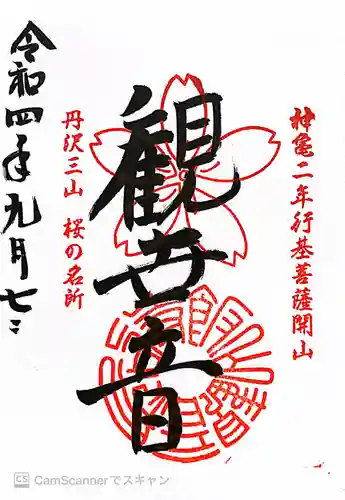 神亀二年行基菩薩開山
観世音
丹沢三山 桜の名所
令和四年九月七日
CS CamScannerでスキャン